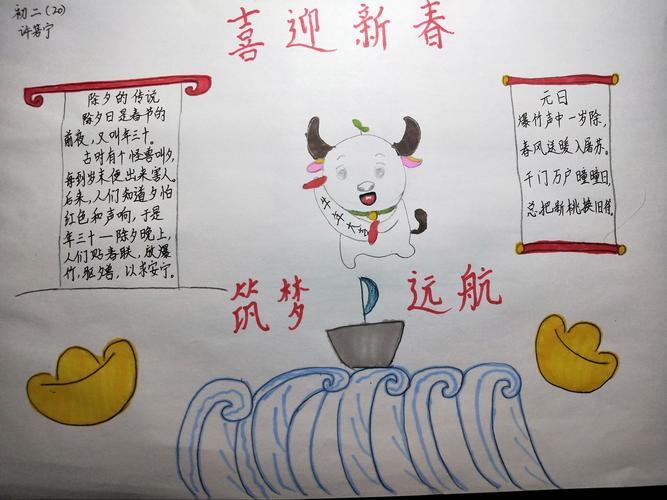 初二（20）
喜迎新春
除夕的传说
除夕日是春节的
前夜，又叫年三十。
古时有个怪兽叫夕，
每到岁末便出来害人。
后来，人们知道夕怕
红色和声响，于是
年三十一除夕晚上，
人们贴春联，放爆
竹，驱夕兽，以求安宁。
牛年大吉
元日
爆竹声中一岁除，
春风送暖入屠苏。
千门万户瞳瞳日，
总把新桃换旧符。
筑梦 远航